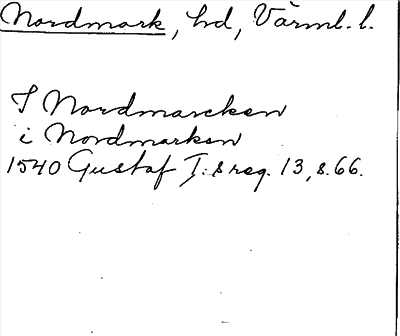 Nordmark, hd, Värml. l.
I Nordmarcken
i Nordmarken
1540 Gustaf I:s reg. 13, s. 66.